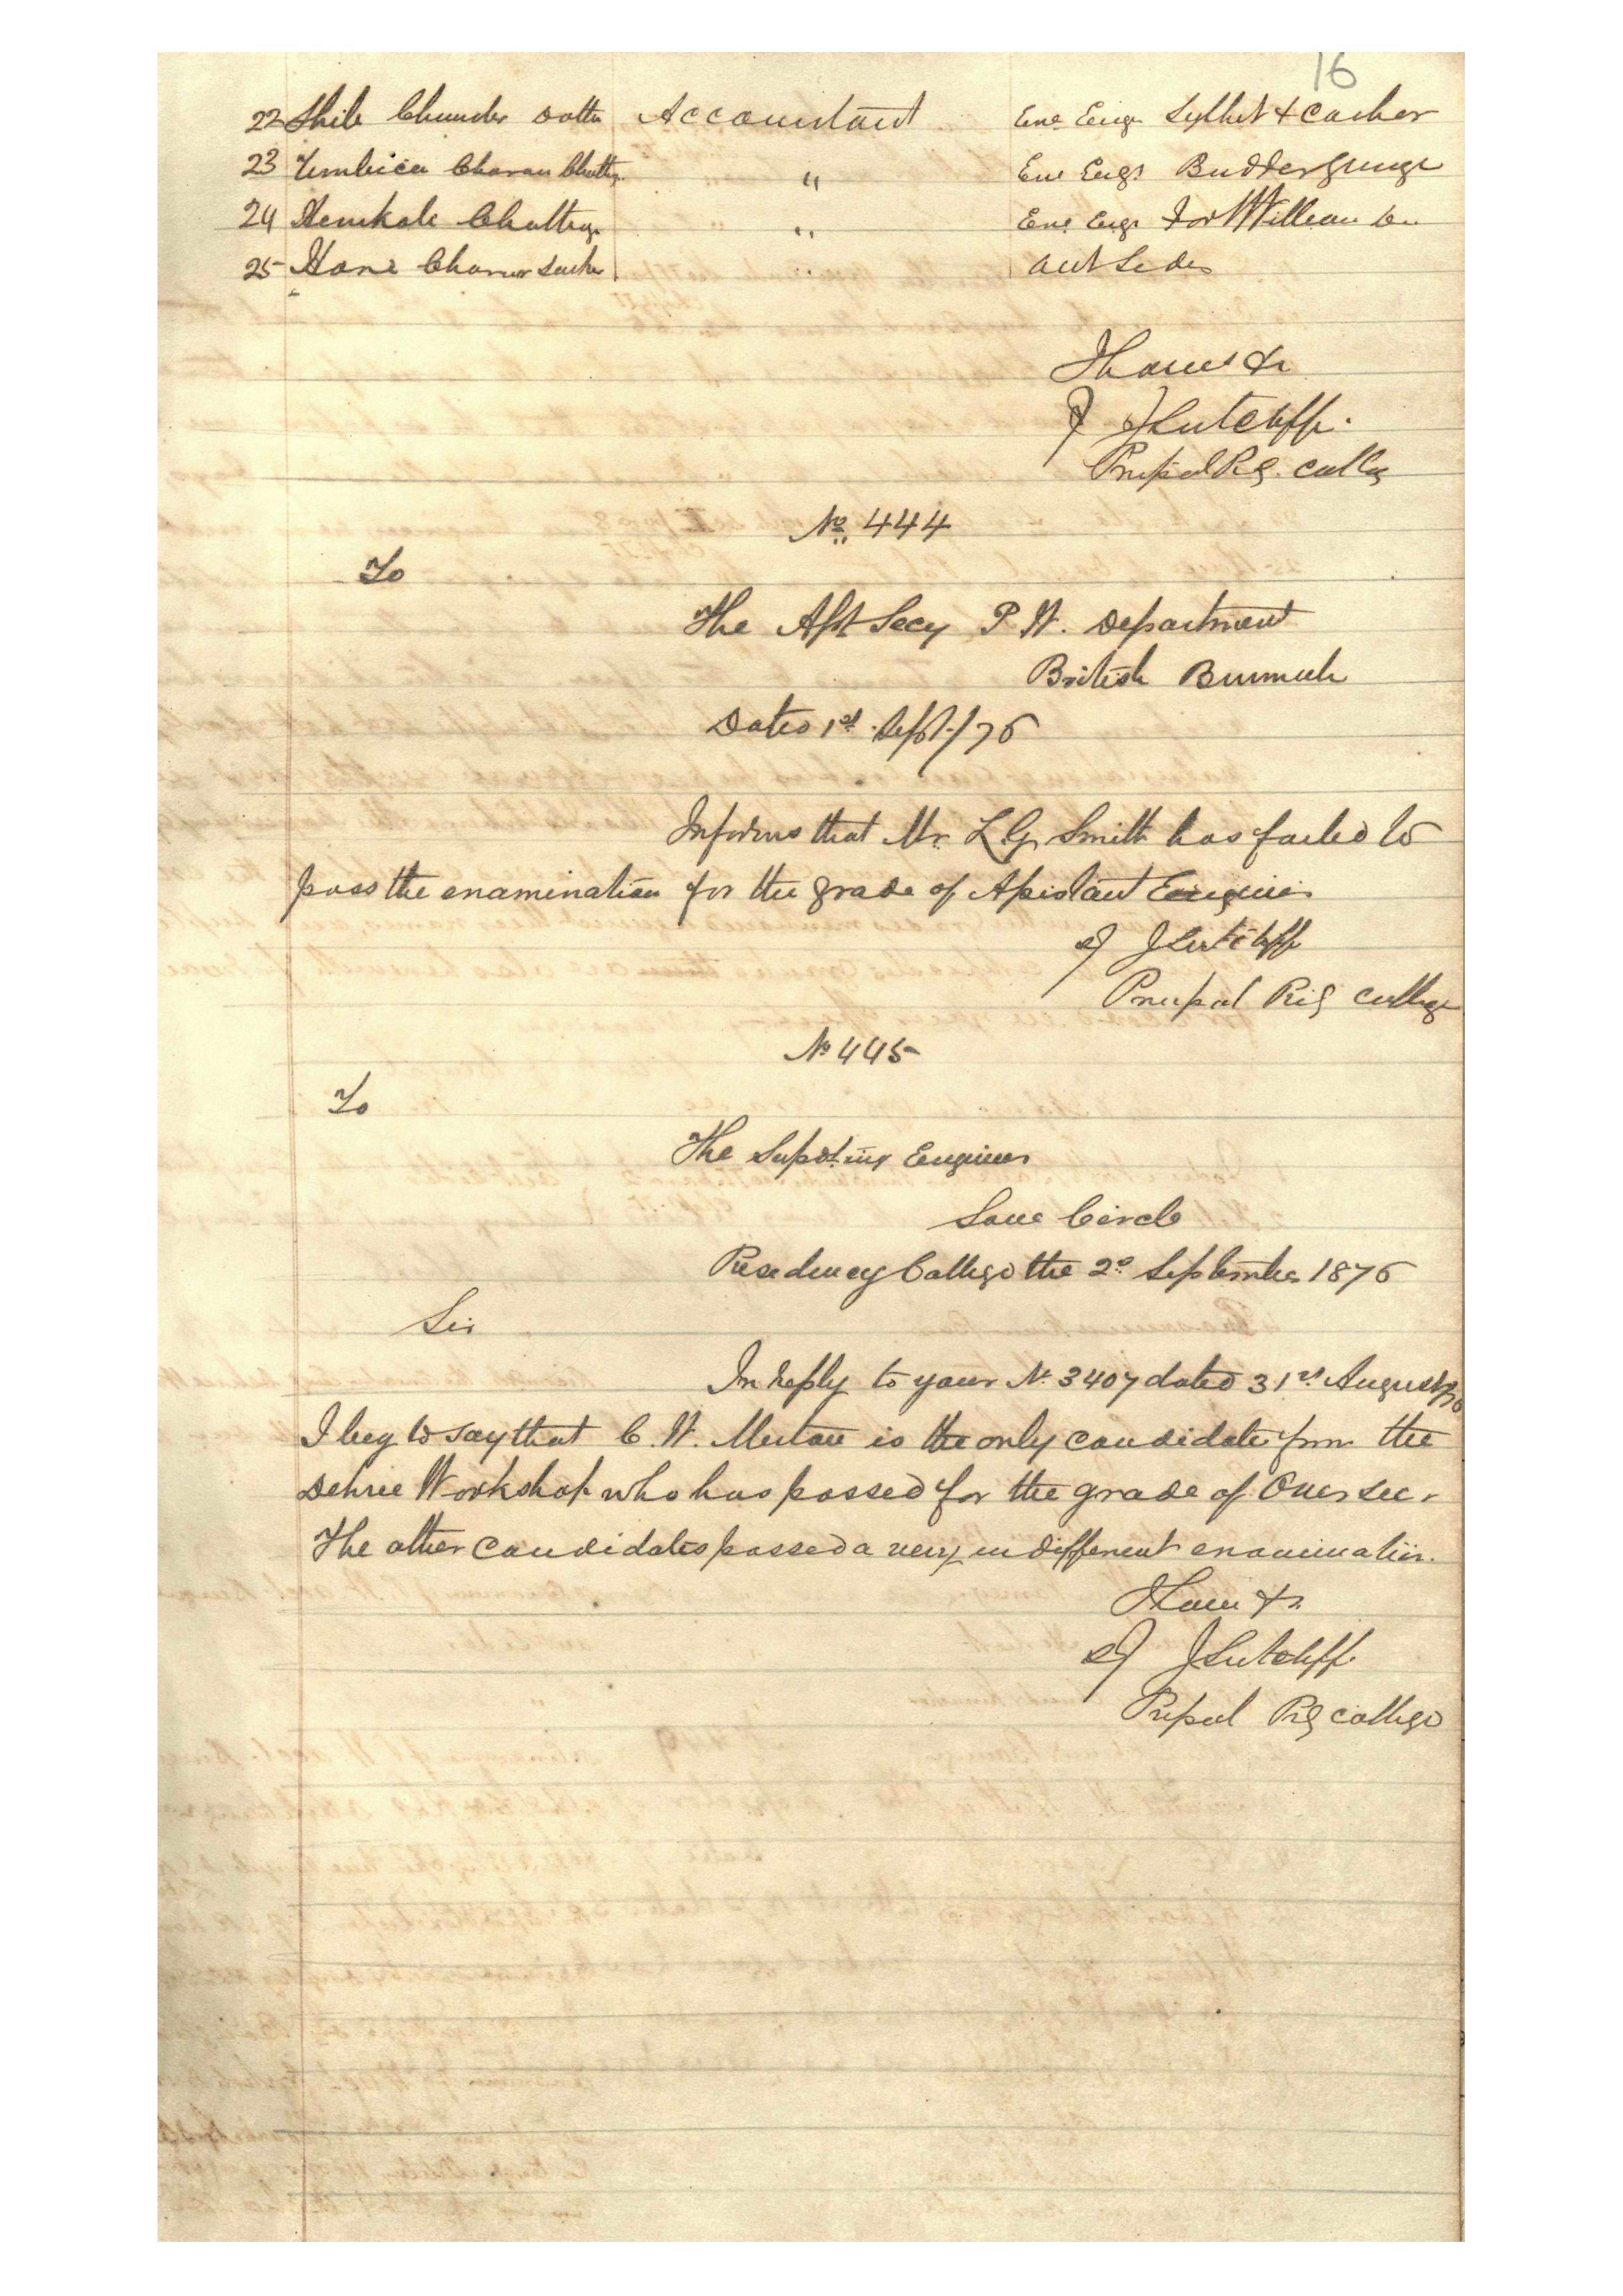 16
22 Shib Chunder Dutta Accountant Exe Engr Sylhet & Cachar
23 Umbica Charan Chatterjee " Exe Engr Buddergunge
24 Chatterjee " Exe Engr Fort William
25 Charan " Outsider
I have &c
Sd J Sutcliffe.
Prinpal Presy. College
No. 444
To
The Asst Secy P W. Department
British Burmah
Dated 1st Sept/76
Informs that Mr. L G Smith has failed to
pass the examination for the grade of Assistant Engineer
Sd J Sutcliffe
Prinpal College
No 445
To
The Supdting Engineer
Sone Circle
Presidency College the 2d September 1876
Sir
In reply to your No. 3407 dated 31st August/76
I beg to say that C. W. is the only candidate from the
Dehree Workshop who has passed for the grade of Overseer
The other candidates passed a very indifferent examination.
I have &c.
Sd J Sutcliffe
Prinpal College